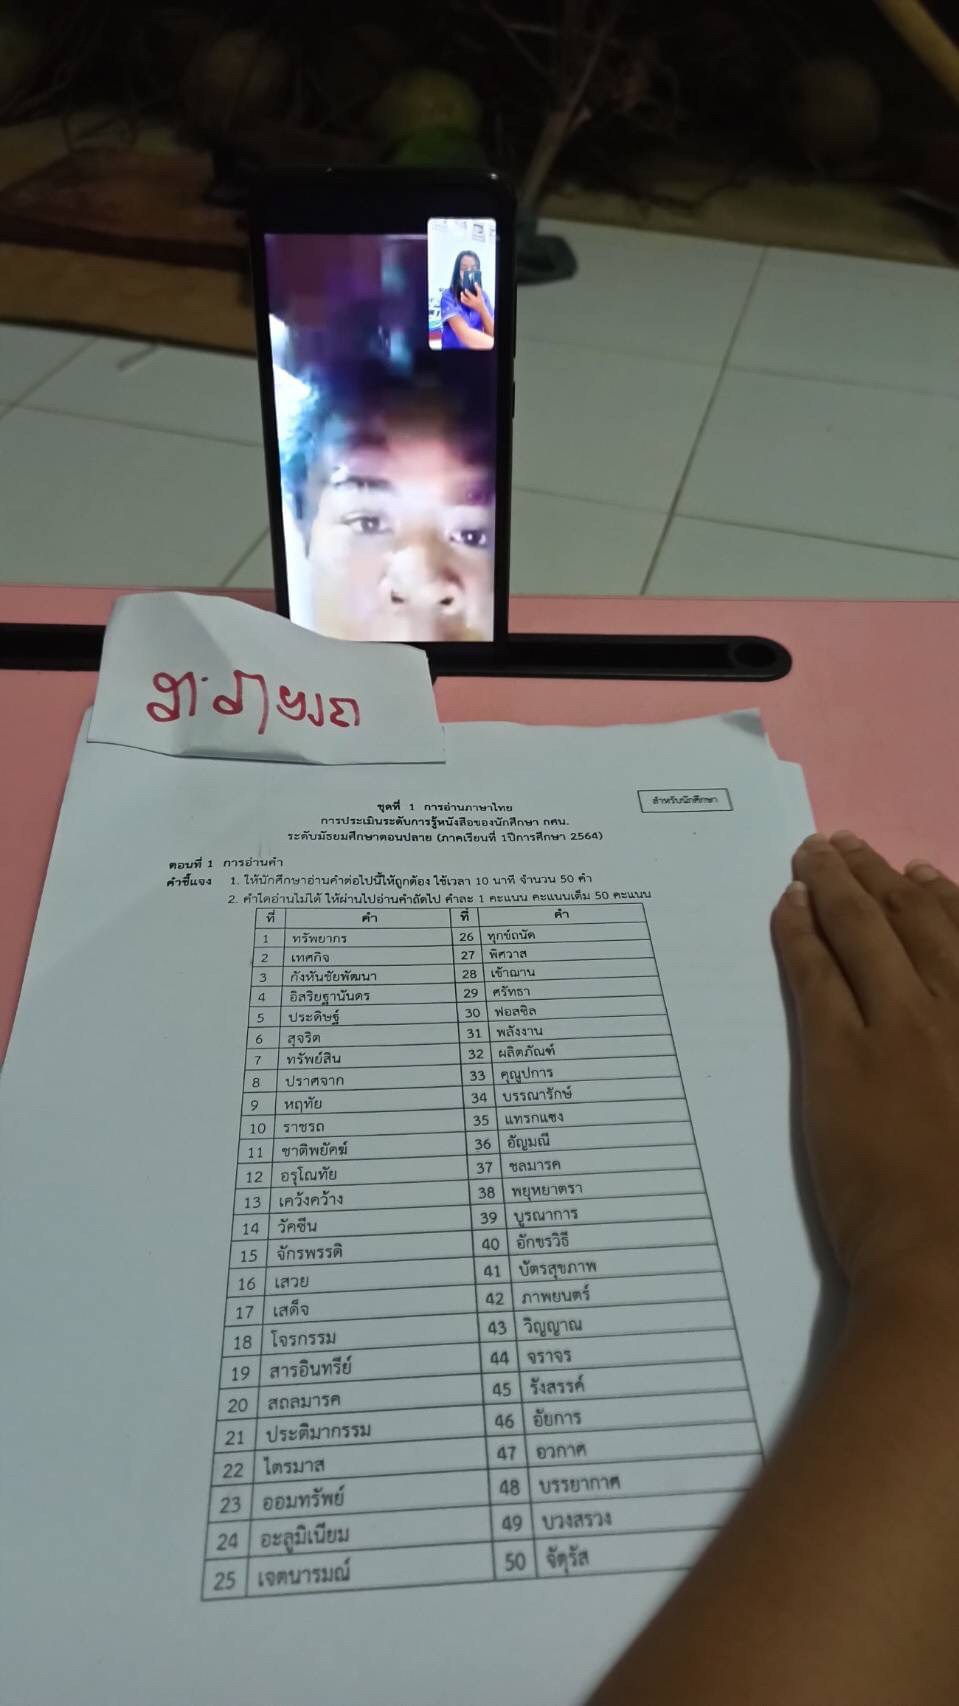 ชุดที่ 1 การอ่านภาษาไทย
สำหรับนักศึกษา
การประเมินระดับการรู้หนังสือของนักศึกษา กศน.
ระดับมัธยมศึกษาตอนปลาย (ภาคเรียนที่ 1ปีการศึกษา 2564)
ตอนที่ 1 การอ่านคำ
คำชี้แจง 1. ให้นักศึกษาอ่านคำต่อไปนี้ให้ถูกต้อง ใช้เวลา 10 นาที จำนวน 50 คำ
2. คำใดอ่านไม่ได้ ให้ผ่านไปอ่านคำถัดไป คำละ 1 คะแนน คะแนนเต็ม 50 คะแนน
ที่ คำ ที่ คำ
1 ทรัพยากร 26 ทุกข์ถนัด
2 เทศกิจ 27 พิศวาส
3 กังหันชัยพัฒนา 28 เข้าฌาน
4 อิสริยฐานันดร 29 ศรัทธา
5 ประดิษฐ์ 30 ฟอสซิล
6 สุจริต 31 พลังงาน
7 ทรัพย์สิน 32 ผลิตภัณฑ์
8 ปราศจาก 33 คุณูปการ
9 หฤทัย 34 บรรณารักษ์
10 ราชรถ 35 แทรกแซง
11 ชาติพยัคฆ์ 36 อัญมณี
12 อรุโณทัย 37 ชลมารค
13 เคว้งคว้าง 38 พยุหยาตรา
14 วัคซีน 39 บูรณาการ
15 จักรพรรดิ 40 อักขรวิธี
16 เสวย 41 บัตรสุขภาพ
17 เสด็จ 42 ภาพยนตร์
18 โจรกรรม 43 วิญญาณ
19 สารอินทรีย์ 44 จราจร
20 สถลมารค 45 รังสรรค์
21 ประติมากรรม 46 อัยการ
22 ไตรมาส 47 อวกาศ
23 ออมทรัพย์ 48 บรรยากาศ
24 อะลูมิเนียม 49 บวงสรวง
25 เจตนารมณ์ 50 จัตุรัส